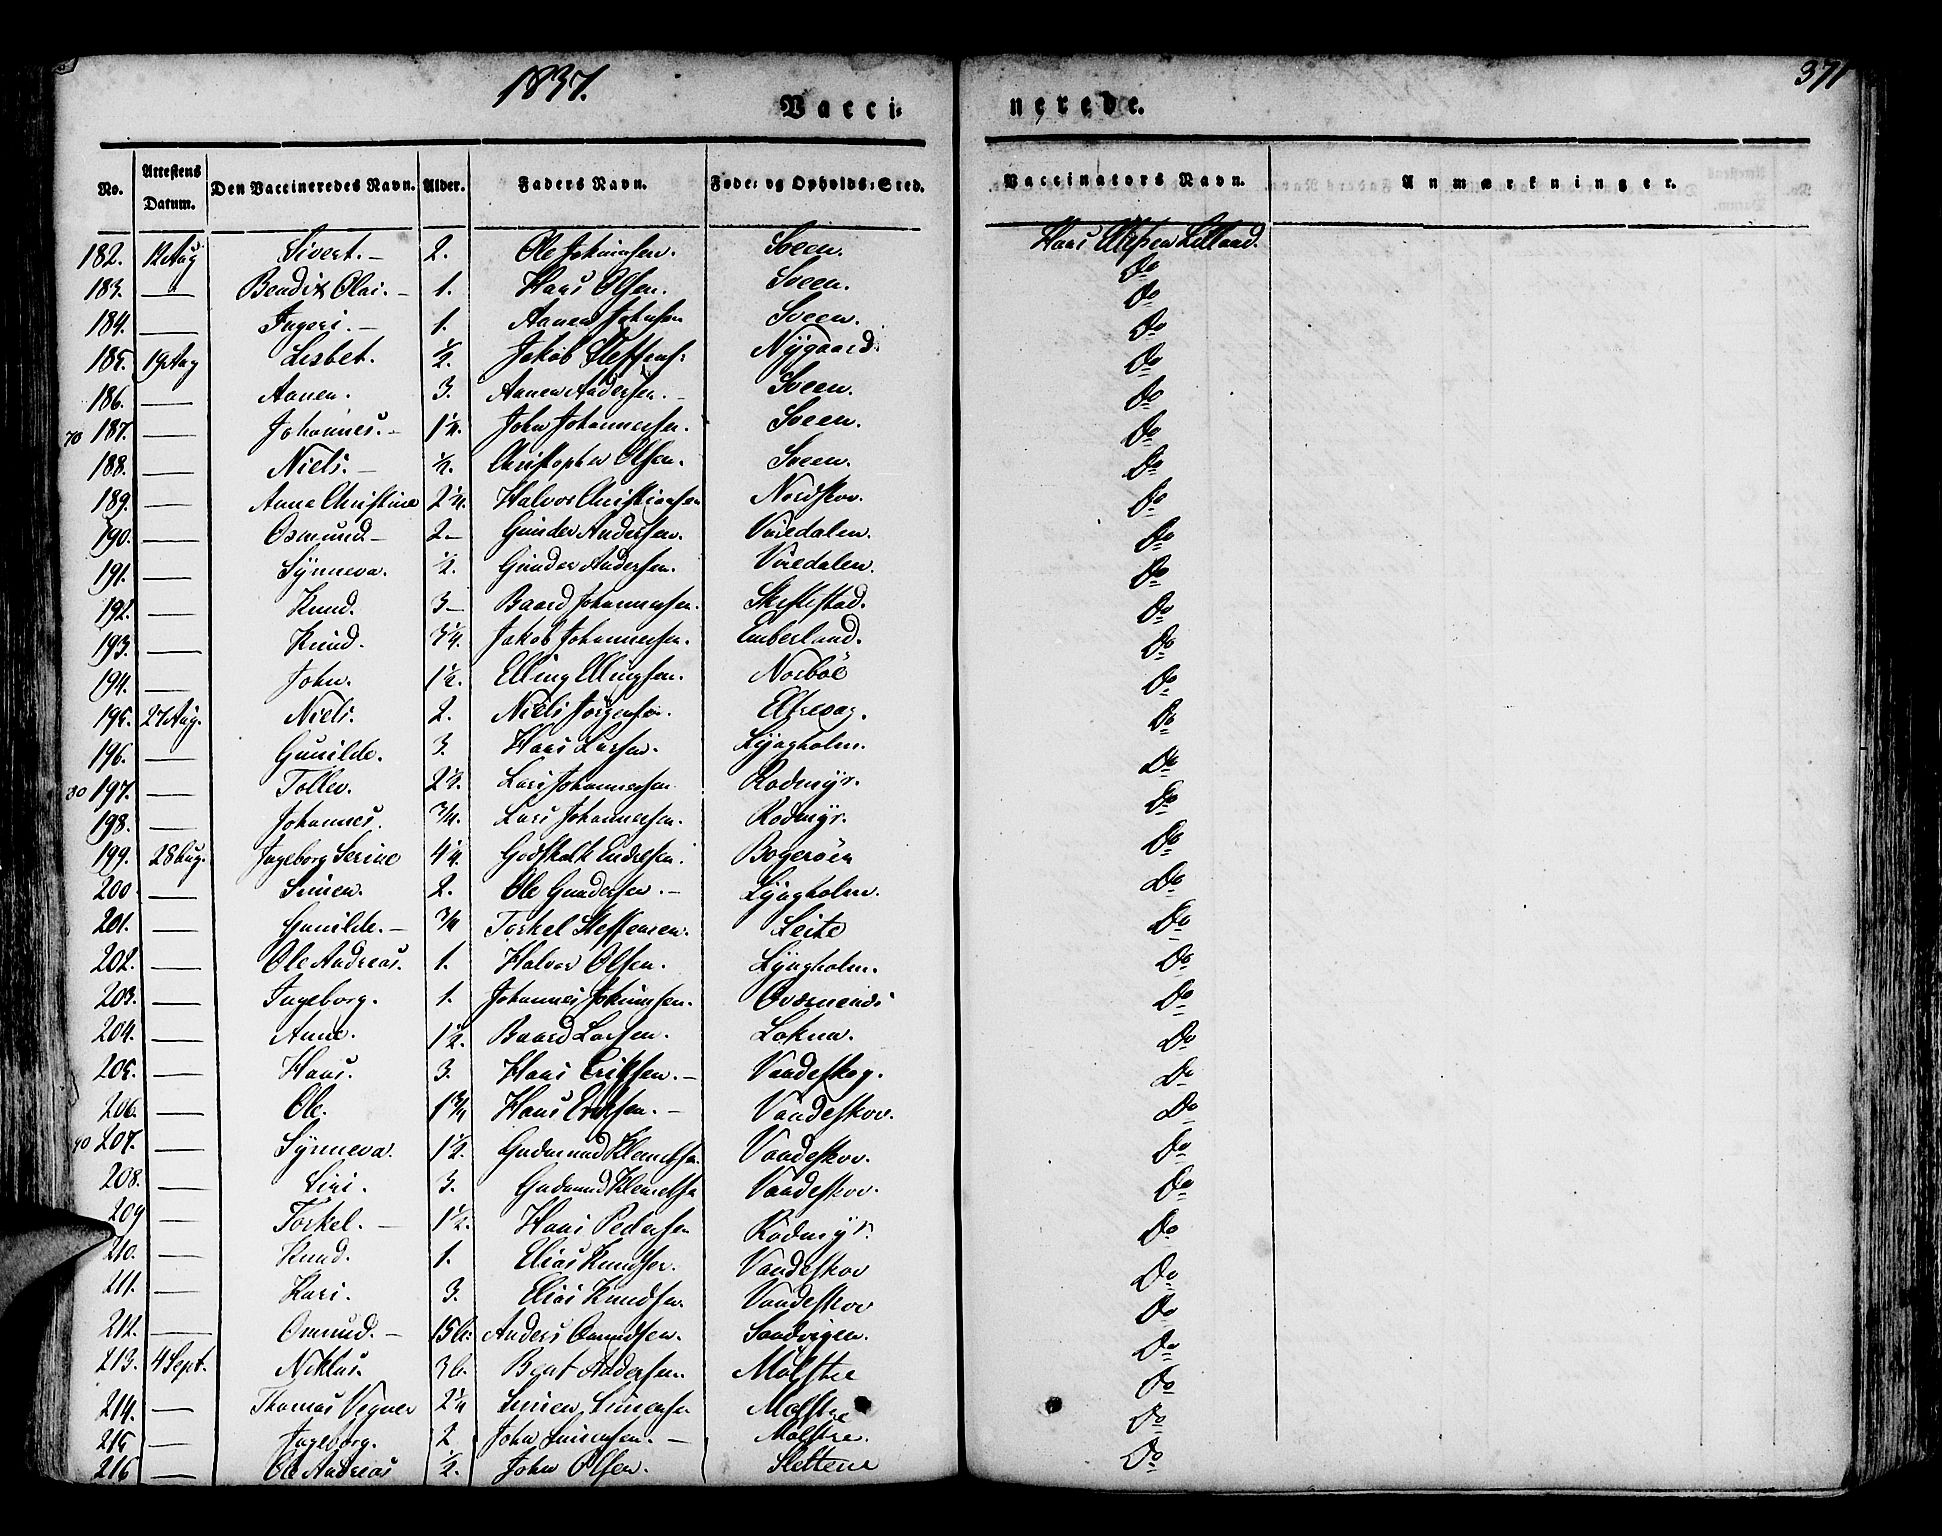 1837.
371
Vacci- nerede.
No. Attestens Datum. Den Vaccineredes Navn. Alder. Faders Navn. Føde- og Opholds-Sted. Vaccinators Navn. Anmærkninger.
182. 12 Aug Sivert. 2. Ole Johannsen. Sveen. Hans
183. — Bendix Olai. 1. Hans Olsen. Sveen. Do
184. — Ingeri. 1. Aanen Johnsen Sveen. Do
185. 19 Aug Lisbet. ½. Jakob Steffens: Nygaard. Do
186. — Aanen. 3. Aanen Andersen. Sveen. Do
70 187. — Johannes. 1¼. John Johannessen. Sveen. Do
188. — Niels. ½. Christopher Olsen. Sveen. Do
189. — Anne Christine 2¼. Halvor Christiansen Nordskov. Do
190. — Osmund 2 Gunder Andersen. Viredalen. Do
191. — Synneva. ½. Gunder Andersen. Viredalen. Do
192. — Knud. 3 Baard Johannessen. Do
193. — Knud. Jakob Johannessen. Emberland. Do
194. — John. 1½. Elling Ellingsen. Norbøe Do
195. 27 Aug. Niels. 2. Niels Jørgensen. Do
196. — Gunilde. 3. Hans Larsen. Lyngholm. Do
80 197. — Tollev. 2½. Lars Johannessen Rodmyr. Do
198. — Johannes. ¾. Lars Johannessen. Rodmyr. Do
199. 28 Aug. Ingeborg Serine 4¼. Godskalk Endresen. Bogerøen Do
200. — Simen. 2. Ole Gundersen. Lyngholm. Do
201. — Gunilde. ¾ Torkel Steffensen. Leite Do
202. — Ole Andreas. 1. Halvor Olsen. Lyngholm. Do
203. — Ingeborg. 1. Johannes Johannsen. Do
204. — Anne. 1½. Baard Larsen. Lokna. Do
205. — Hans. 3. Hans Eriksen. Vandeskog. Do
206. — Ole. 1¾ Hans Eriksen. Vandeskov. Do
90 207. — Synneva. 1½. Gudmund Klemetsen Vandeskov. Do
208. — Siri. 3. Gudmund Klemetsen Vandeskov. Do
209 — Torkel. 1½. Hans Pedersen Rodmyr. Do
210. — Knud. 1. Elias Knudsen. Vandeskov Do
211. — Kari. 3. Elias Knudsen. Vandeskov Do
212. — Omund. Anders Omundsen. Sandvigen. Do
213. 4 Sept. Niklas. Bent Andersen. Molstre Do
214. — Thomas Vegner 2¼ Simen Simensen Molstre Do
215 — Ingeborg. 2 John Simensen. Molstre. Do
216 — Ole Andreas ½. John Olsen. Slettene Do